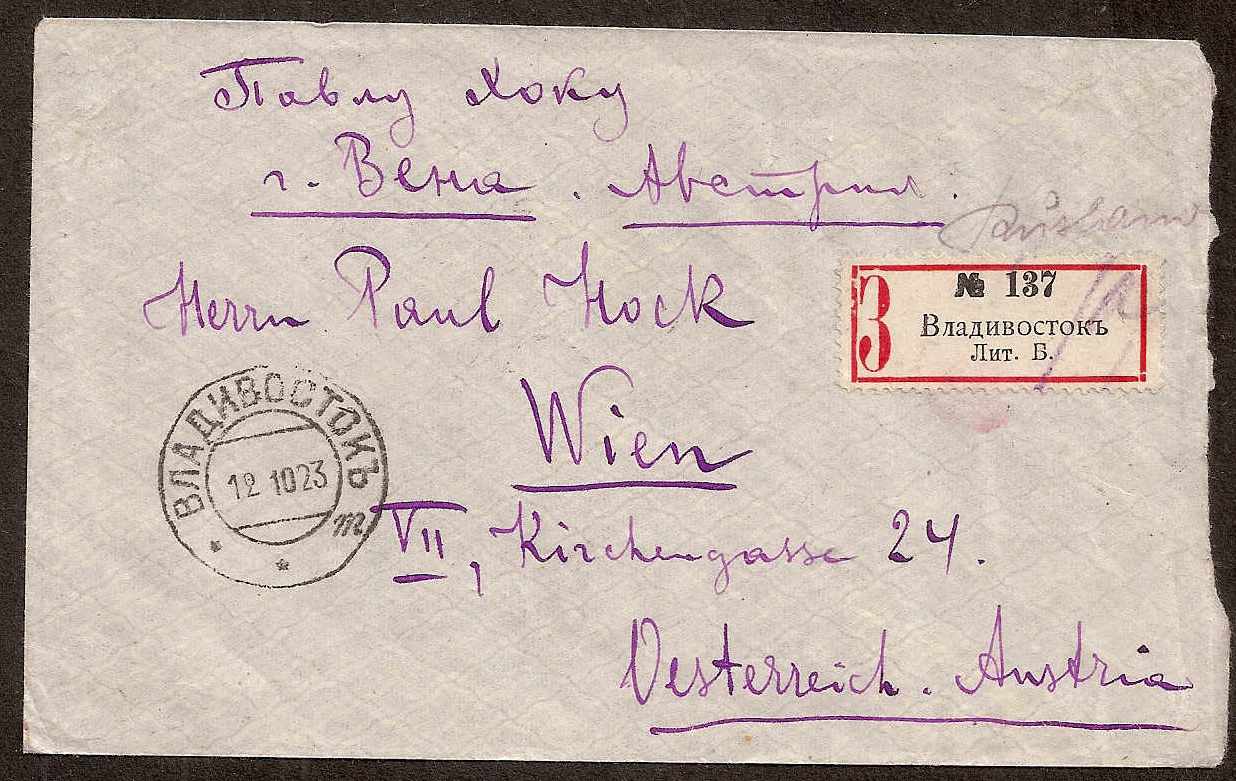 Павлу Хоку
г. Вена. Австрия.
Herrn Paul Hock
Wien
VII, Kirchengasse 24.
Oesterreich. Austria
З
№ 137
Владивостокъ
Лит. Б.
ВЛАДИВОСТОКЪ
12 10 23
т